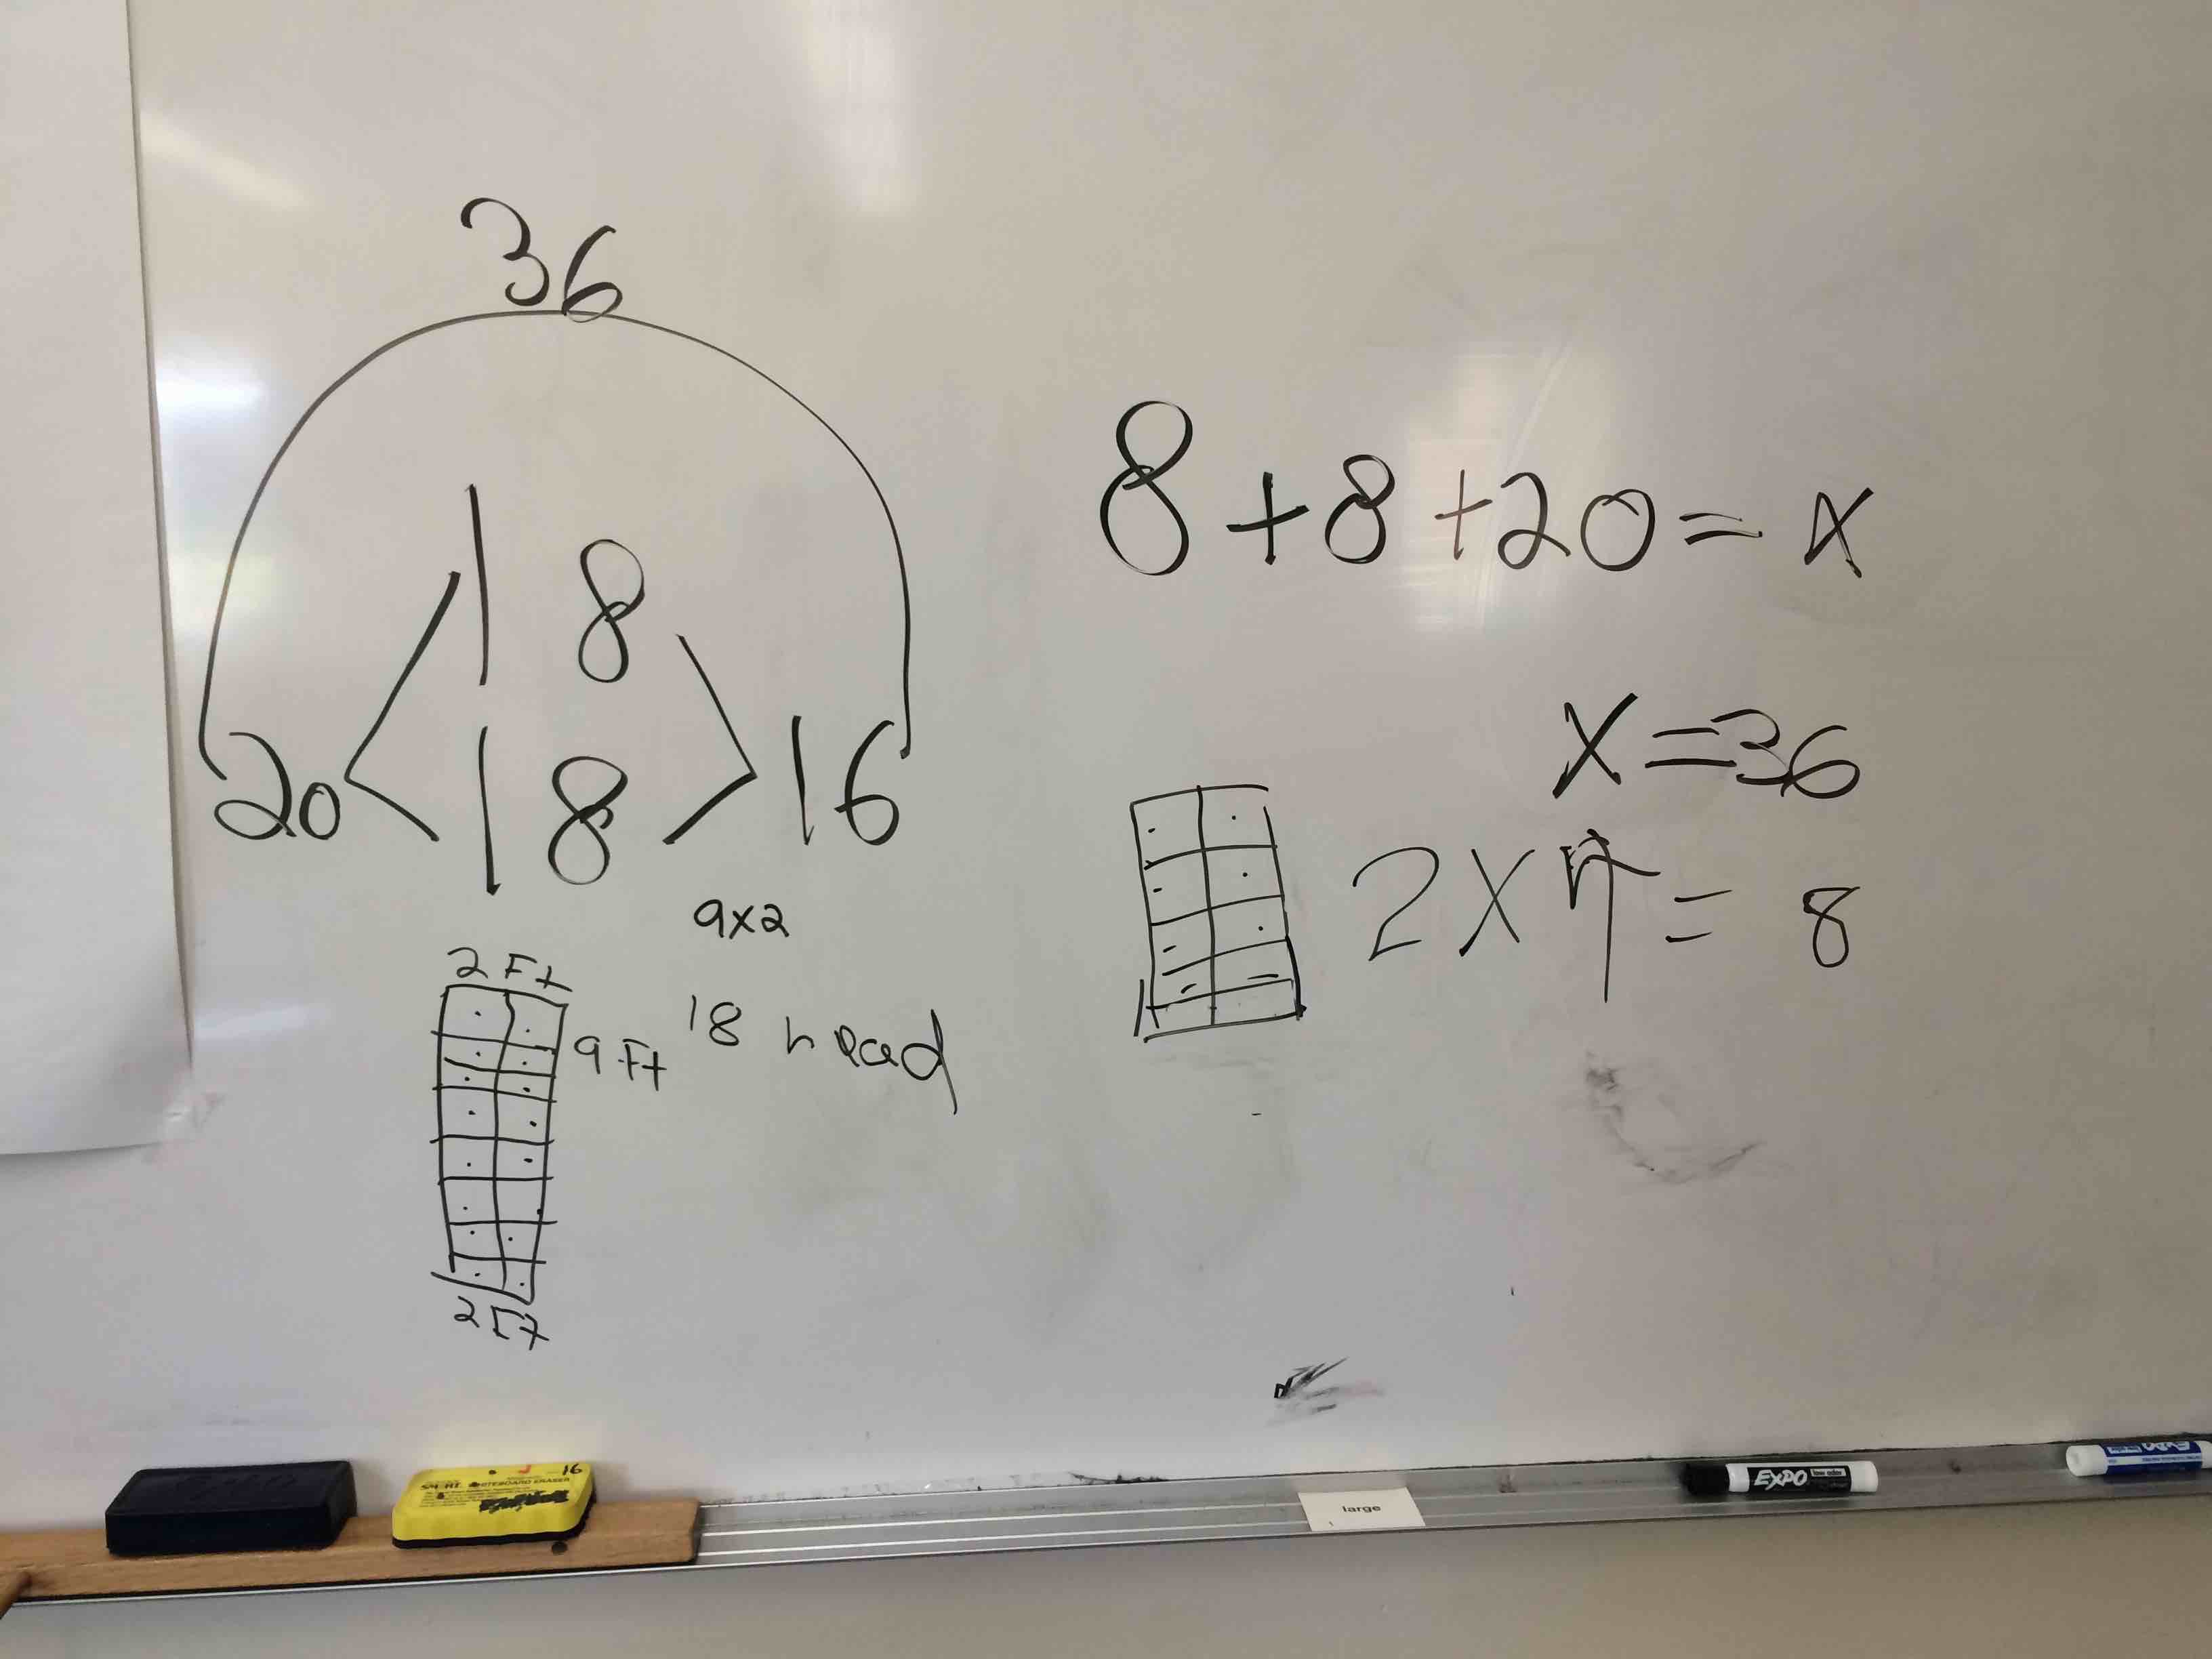 36
1 8
20 1 8 16
9x2
2 Ft
9 Ft 18 head
2 Ft
8+8+20=x
x=36
2x4=8
16
EXPO
large